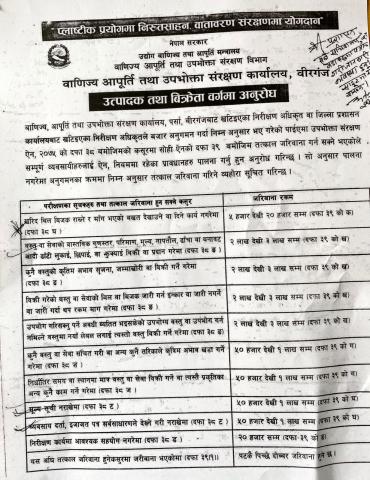 "प्लाष्टीक प्रयोगमा निरुत्साहन, वातावरण संरक्षणमा योगदान"
नेपाल सरकार
उद्योग वाणिज्य तथा आपूर्ति मन्त्रालय
वाणिज्य आपूर्ति तथा उपभोक्ता संरक्षण विभाग
वाणिज्य आपूर्ति तथा उपभोक्ता संरक्षण कार्यालय, वीरगंज
उत्पादक तथा बिक्रेता वर्गमा अनुरोध
वाणिज्य, आपूर्ति तथा उपभोक्ता संरक्षण कार्यालय, पर्सा, वीरगंजबाट खटिइएका निरीक्षण अधिकृत वा जिल्ला प्रशासन
कार्यालयबाट खटिइएका निरीक्षण अधिकृतले बजार अनुगमन गर्दा निम्न अनुसार भए गरेको पाईएमा उपभोक्ता संरक्षण
ऐन, २०७५ को दफा ३८ बमोजिमको कसूरमा सोही ऐनको दफा ३९ बमोजिम तत्काल जरिवाना गर्न सक्ने भएकोले
सम्पूर्ण व्यवसायीहरुलाई ऐन, नियममा रहेका प्रावधानहरु पालना गर्नु हुन अनुरोध गरिन्छ । सो अनुसार पालना
नगरेमा अनुगमनका क्रममा निम्न अनुसार तत्काल जरिवाना गरिने व्यहोरा सूचित गरिन्छ ।
परीक्षणका सूचकहरु तथा तत्काल जरिवाना हुन सक्ने कसूर
जरिवाना रकम
खरिद बिल बिजक राख्ने र माग भएको बखत देखाउने वा दिने कार्य नगरेमा
(दफा ३८ घ )
५ हजार देखी २० हजार सम्म (दफा ३९ को क)
वस्तु वा सेवाको वास्तविक गुणस्तर, परिमाण, मूल्य, नापतौल, ढाँचा वा बनावट
आदी ढाँटी लुकाई, छिपाई, वा झुक्याई विक्री वा प्रदान गरेमा (दफा ३८ ङ )
२ लाख देखी ३ लाख सम्म (दफा ३९ को ख)
कुनै वस्तुको कृतिम अभाव सृजना, जम्माखोरी वा विक्री गर्ने गरेमा
(दफा ३८ )
२ लाख देखी ३ लाख सम्म (दफा ३९ को ख)
विक्री गरेको वस्तु वा सेवाको बिल वा बिजक जारी गर्न इन्कार वा जारी नगर्ने
वा जारी गर्दा थप रकम माग गरेमा (दफा ३८ )
२ लाख देखी ३ लाख सम्म (दफा ३९ को ख)
उपभोग गरिसक्नु पर्ने अवधी व्यतित भइसकेको उपभोग्य वस्तु वा उपभोग गर्न
नमिल्ने वस्तुमा नयाँ लेबल लगाई त्यस्तो वस्तु विक्री गर्ने गरेमा (दफा ३८ )
२ लाख देखी ३ लाख सम्म (दफा ३९ को ख)
कुनै वस्तु वा सेवा संचित गरी वा अन्य कुनै तरिकाले कृत्रिम अभाव खडा गर्ने
गरेमा (दफा ३८ )
५० हजार देखी १ लाख सम्म (दफा ३९ को ग)
निर्धारित समय वा स्थानमा मात्र वस्तु वा सेवा विक्री गर्ने वा त्यस्तै प्रकृतिका
अन्य कुनै काम गर्ने गरेमा (दफा ३८ ज )
५० हजार देखी १ लाख सम्म (दफा ३९ को ग)
मूल्य सूची नराखेमा (दफा ३८ ट )
५० हजार देखी १ लाख सम्म (दफा ३९ को )
व्यवसाय दर्ता, इजाजत पत्र सर्वसाधारणले देख्ने गरी नराखेमा (दफा ३८ ट )
५० हजार देखी १ लाख सम्म (दफा ३९ को घ)
निरीक्षण कार्यमा आवश्यक सहयोग नगरेमा (दफा ३८ ड )
२० हजार सम्म (दफा ३९ को ङ)
यस अघि तत्काल जरिवाना हुनेकसुरमा जरीवाना भएकोमा (दफा ३९(१))
पटकै पिच्छे दोब्बर जरिवाना हुने छ।